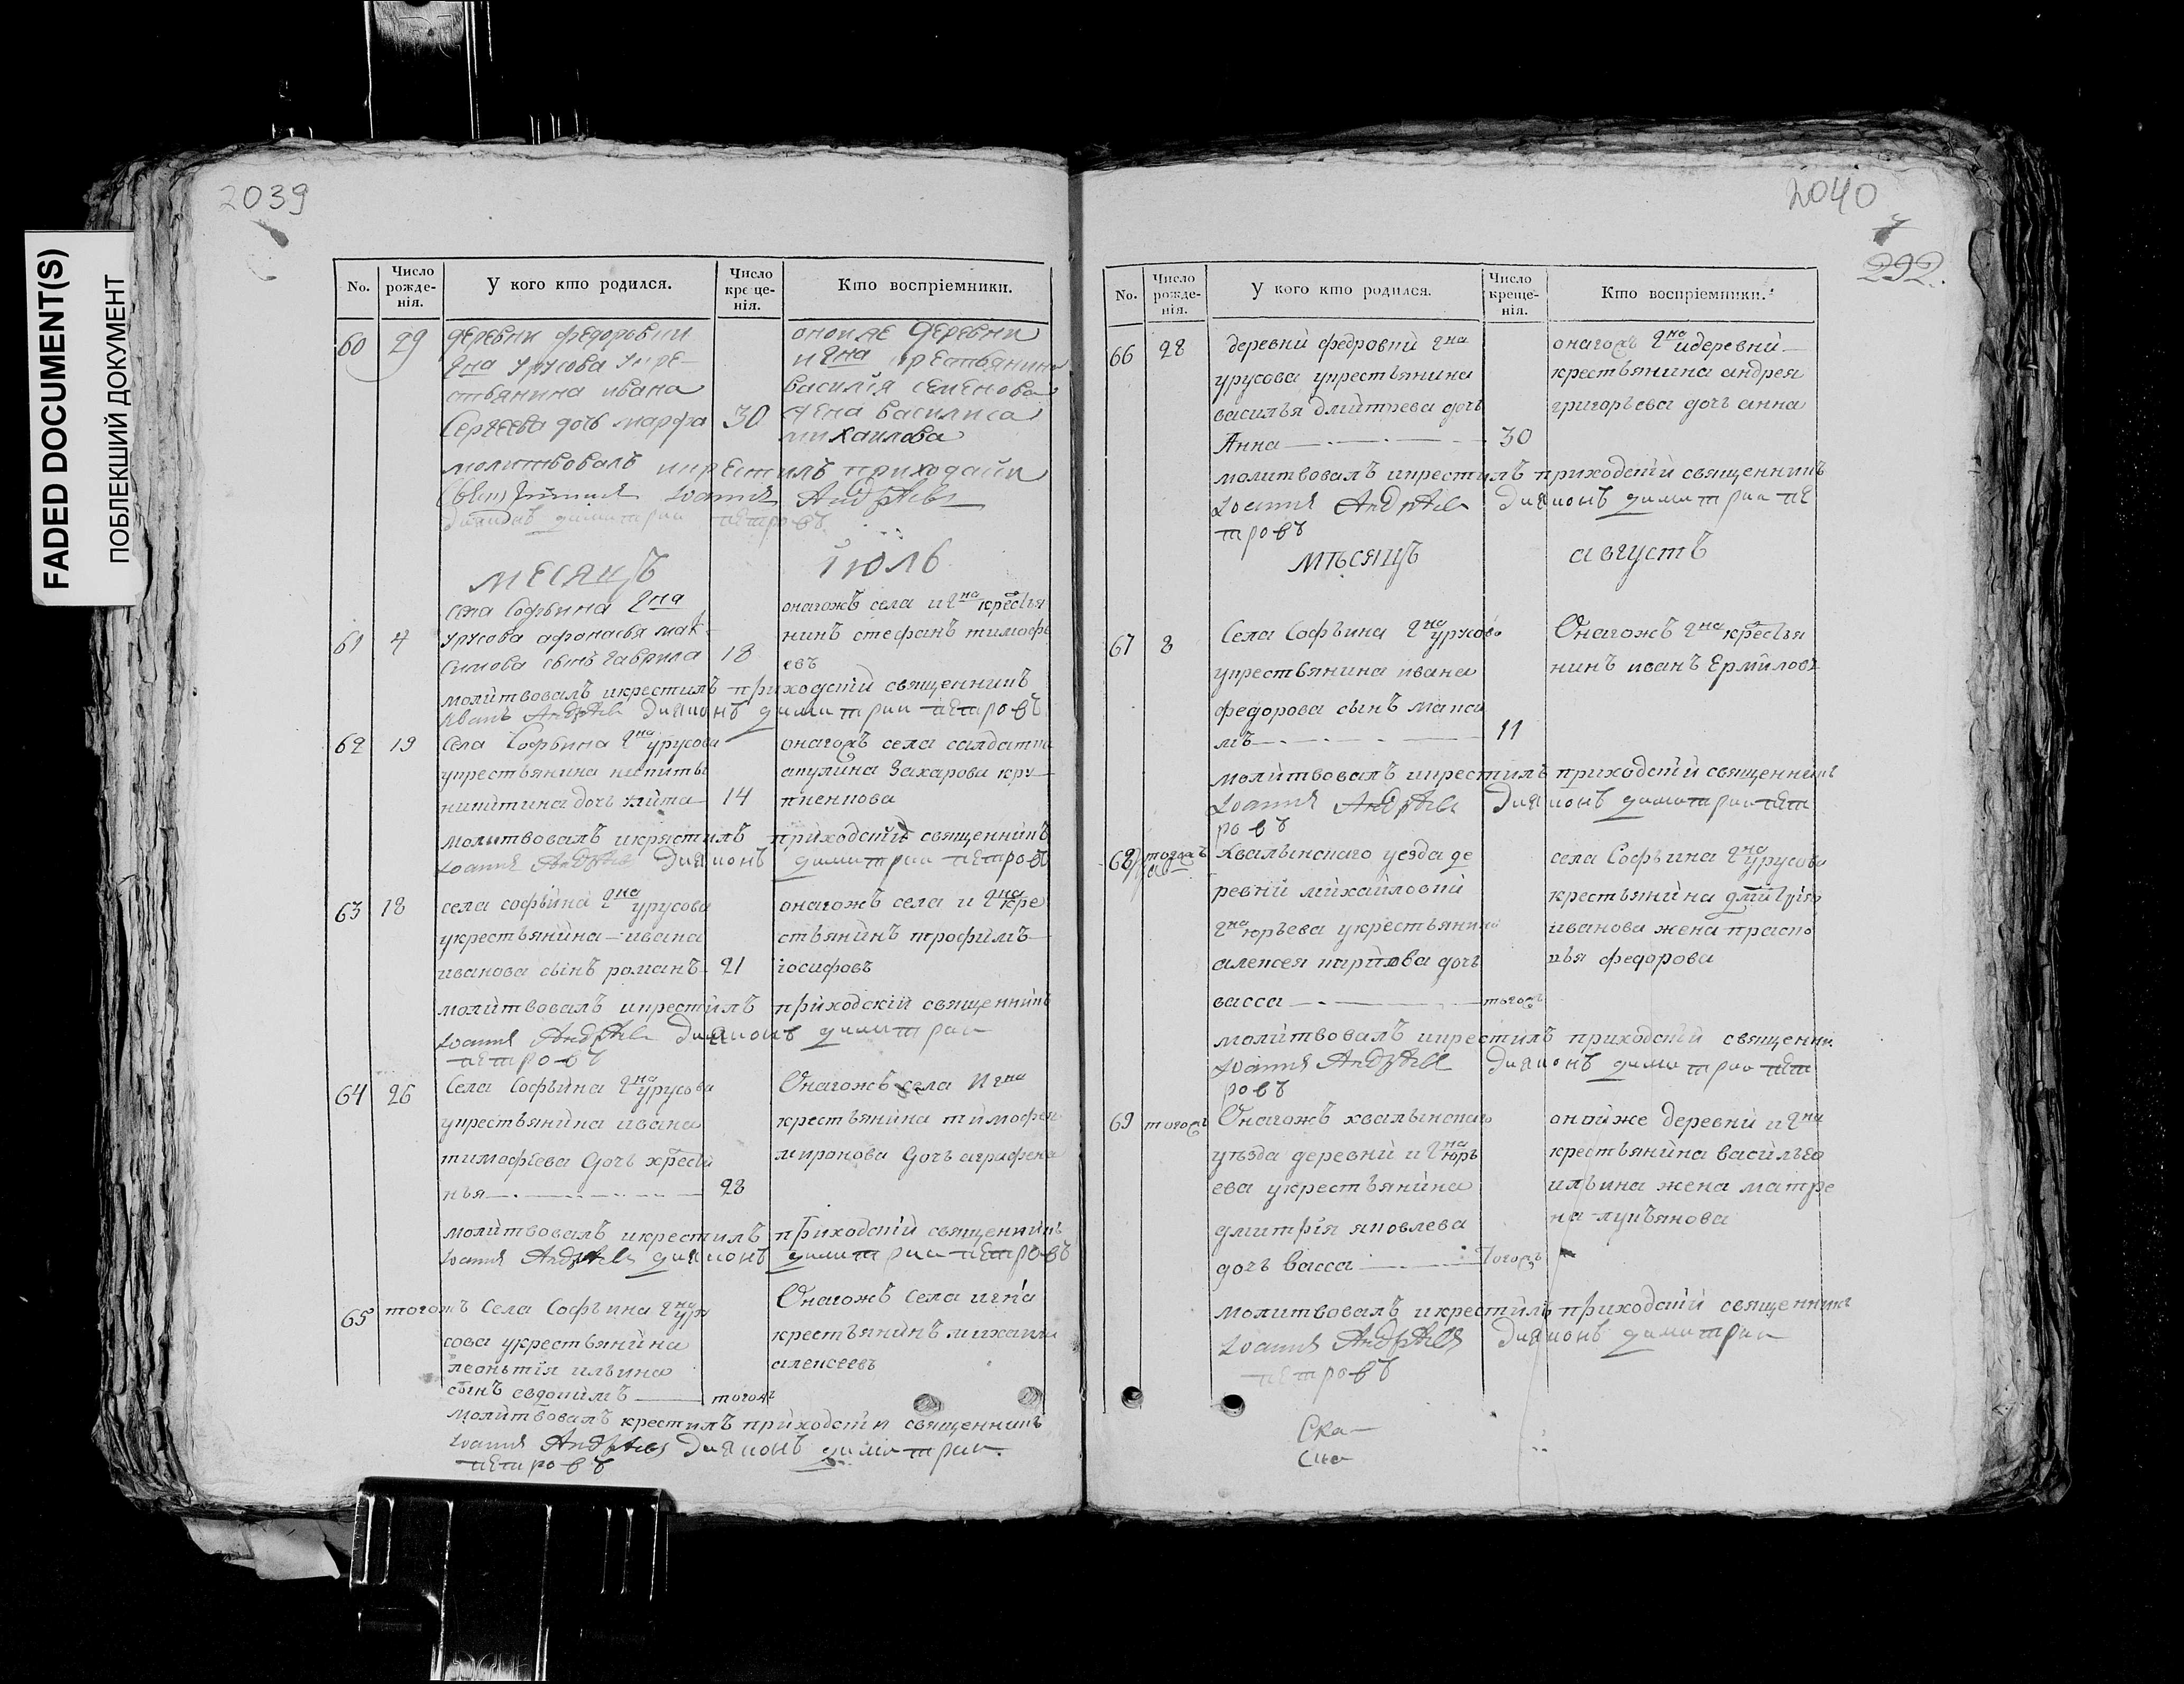 FADED DOCUMENT(S)
ПОБЛЕКШИЙ ДОКУМЕНТ
2039
No. Число рожденія. У кого кто родился. Число крещенія. Кто воспріемники.
60 29 деревни федоровки
гна урусова укре-
стьянина ивана
Сергеева дочь марфа 30
оноиже деревни
и гна крестьянина
василія семенова
жена василиса
михаилова
молитвовалъ икрестилъ приходскій
священникъ Iоаннъ Андрѣевъ
диаконъ димитрий петровъ
месяцъ июль
села софьина гна
61 4 урусова афонасья мак-
симова сынъ гаврила 18
онагожъ села и гна крестья
нинъ стефанъ тимофе
евъ
молитвовалъ икрестилъ приходскій священникъ
Иванъ Андрѣевъ диаконъ димитрий петровъ
62 19 Села Софьина гна урусова
укрестьянина никиты
никитина дочь 14
онагожъ села салдатка
акулина Захарова кру
пненкова
молитвовалъ икрястилъ приходскій священникъ
Iоаннъ Андрѣевъ диаконъ димитрии петровъ
63 18 села софьина гна урусова
укрестьянина ивана
иванова сынъ романъ 21
онагожъ села и гна кре
стьянинъ трофимъ
іосифовъ
молитвовалъ икрестилъ приходскій священникъ
Iоаннъ Андрѣевъ диаконъ димитрии
петровъ
64 26 Села Софьина гна урусова
укрестьянина ивана
тимофеева дочь хрести
нья 28
Онагожъ села И гна
крестьянина тимофея
миронова дочь аграфена
молитвовалъ икрестилъ приходскій священникъ
Iоаннъ Андрѣевъ диаконъ димитрии петровъ
65 тогожъ Села Софьина гна уру
сова укрестьянина
леонтія ильина
сынъ евдокимъ тогожъ
Онагожъ села и гна
крестьянинъ михаила
алексеевъ
молитвовалъ крестилъ приходскіи священникъ
Iоаннъ Андрѣевъ диаконъ димитрии
петровъ
2040
292
No. Число рожденія. У кого кто родился. Число крещенія. Кто воспріемники.
66 28 деревни федровки гна
урусова укрестьянина
василья дмитрева дочь
Анна 30
онагожъ гна идеревни
крестьянина андрея
григорьева дочь анна
молитвовалъ икрестилъ приходскій священникъ
Iоаннъ Андрѣевъ диаконъ димитрии пе
тровъ
мѣсяцъ августъ
67 8 Села Софьина гна урусова
укрестьянина ивана
федорова сынъ макси
мъ 11
Онагожъ гна крестья
нинъ иванъ Ермиловъ
молитвовалъ икрестилъ приходскій священникъ
Iоаннъ Андрѣевъ диаконъ димитрии пет
ровъ
68 тогожъ хвалынскаго уезда де
ревни михаиловки
гна юрьева укрестьянина
алексея кирилова дочь
васса тогожъ
села Софьина гна урусова
крестьянина дмитрія
иванова жена праско
вья федорова
молитвовалъ икрестилъ приходскій священник
Iоаннъ Андрѣевъ диаконъ димитрии пет
ровъ
69 тогожъ Онагожъ хвалынскаго
уѣзда деревни и гна юрь
ева укрестьянина
дмитрія яковлева
дочь васса тогожъ
онойже деревни и гна
крестьянина василья
ильина жена матре
на лукьянова
молитвовалъ икрестилъ приходскій священникъ
Iоаннъ Андрѣевъ диаконъ димитрии
петровъ